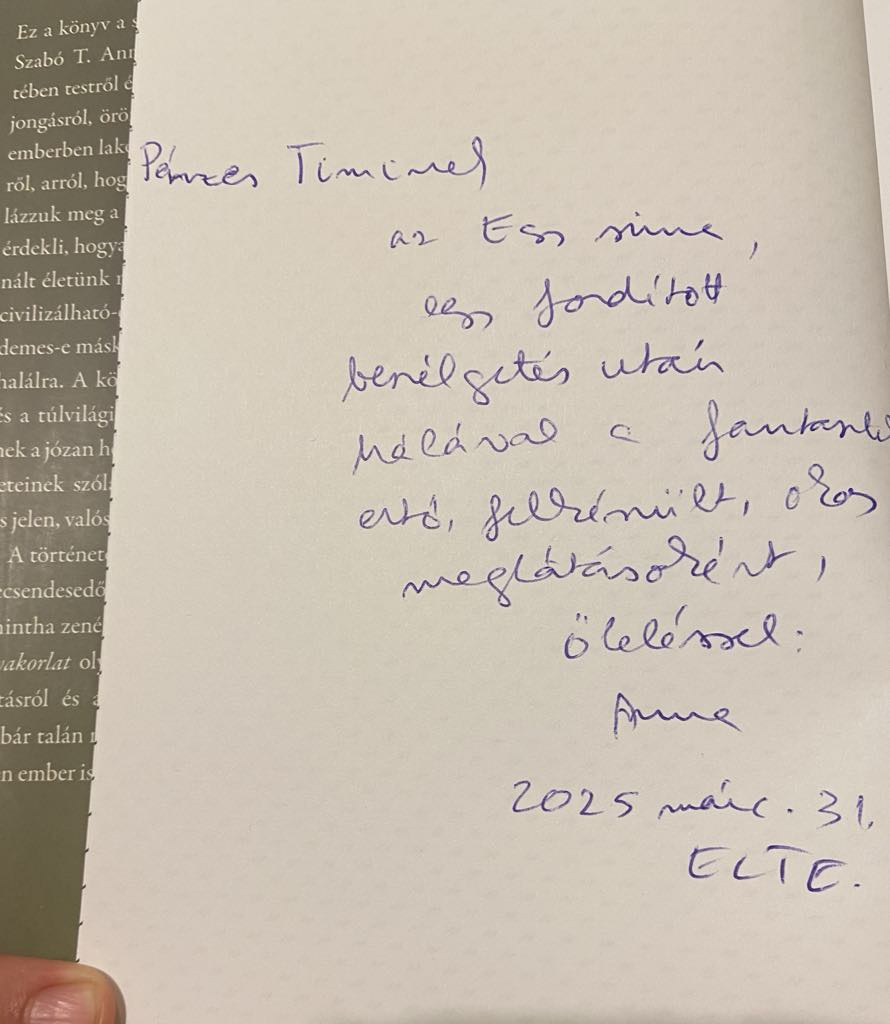 Ez a könyv a s
Szabó T. Ann
tében testről é
jongásról, örö
emberben lak
ről, arról, hog
lázzuk meg a
érdekli, hogya
nált életünk
civilizálható-
demes-e másk
halálra. A kö
és a túlvilági
nek a józan h
eteinek szól
s jelen, valós
A történet
csendesedő
mintha zené
yakorlat oly
tásról és a
bár talán
n ember is
Pénzes Timinek
az Égi színe,
egy fordított
beszélgetés után
hálával a fantaszti
értő, felkészült, okos
meglátásokért,
öleléssel:
Anna
2025 márc. 31.
ELTE.